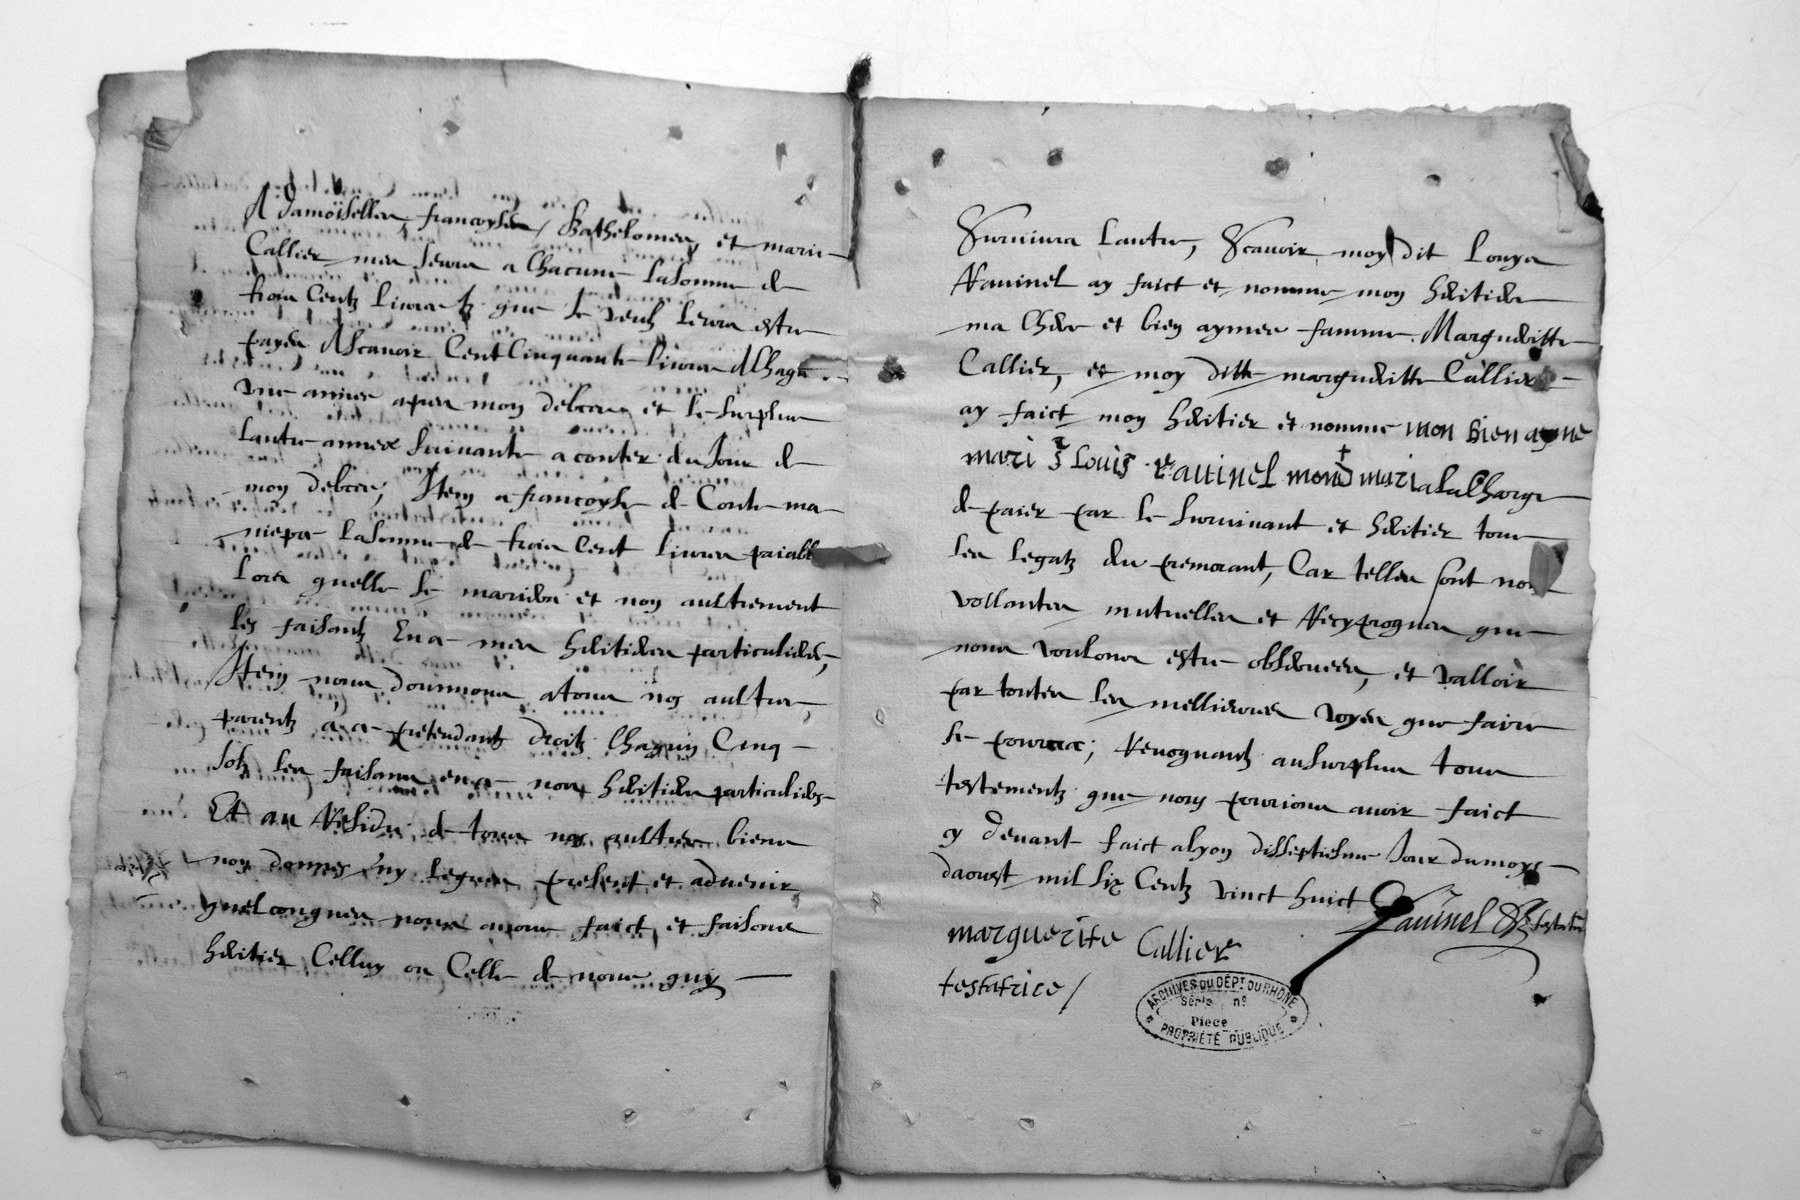 A damoiselles francoyses, Bathelomee, et marie
Callier mes seurs a chacune la somme de
trois Centz livres tz que je veux leurs estre
payés Ascavoir Cent Cinquante livres A chaqu
une annee apres mon deces et le surplus
lautre annee suivante a conter du Jour de
mon deces, Item a francoyse de Conte ma
niepce la somme de trois Cent livres paiabl
lors quelle se mariera et non aultrement
les faisantz en ce mes heritieres particulieres,
Item nous donnons a tous nos aultres,
parentz a ce pretendantz droitz chaquin Cinq
solz les faisans en ce nos heritiers particuliers
Et au Residu de tous nos aultres biens
non donnes ny legues present et advenir
quelconques nous avons faict et faisons
heritier Celluy ou Celle de nous quy
Survivra lautre, Scavoir moy dit Louys
Ravinel ay faict et nomme mon heritiere
ma chere et bien aymee famme Margueritte
Callier, et moy ditte margueritte Callier
ay faict mon heritier et nomme mon bien ayme
mari Sr Louis Rauinel mond mari a la charge
de paier par le survivant et heritier tous
les legatz du premorant, Car telles sont nos
vollontes mutuelles et Recyproques que
nous voulons estre observees, et valloir
par toutes les mellieures voyes que faire
se pourra; Revoquantz au surplus tous
testementz que nous pourions avoir faict
cy devant faict a lyon dissseptiesme Jour du moys
daoust mil six Centz vinct huict
Ravinel testateur
marguerite Callier
testatrice /
ARCHIVES DU DÉPT DU RHÔNE
Série nº
Pièce
PROPRIÉTÉ PUBLIQUE